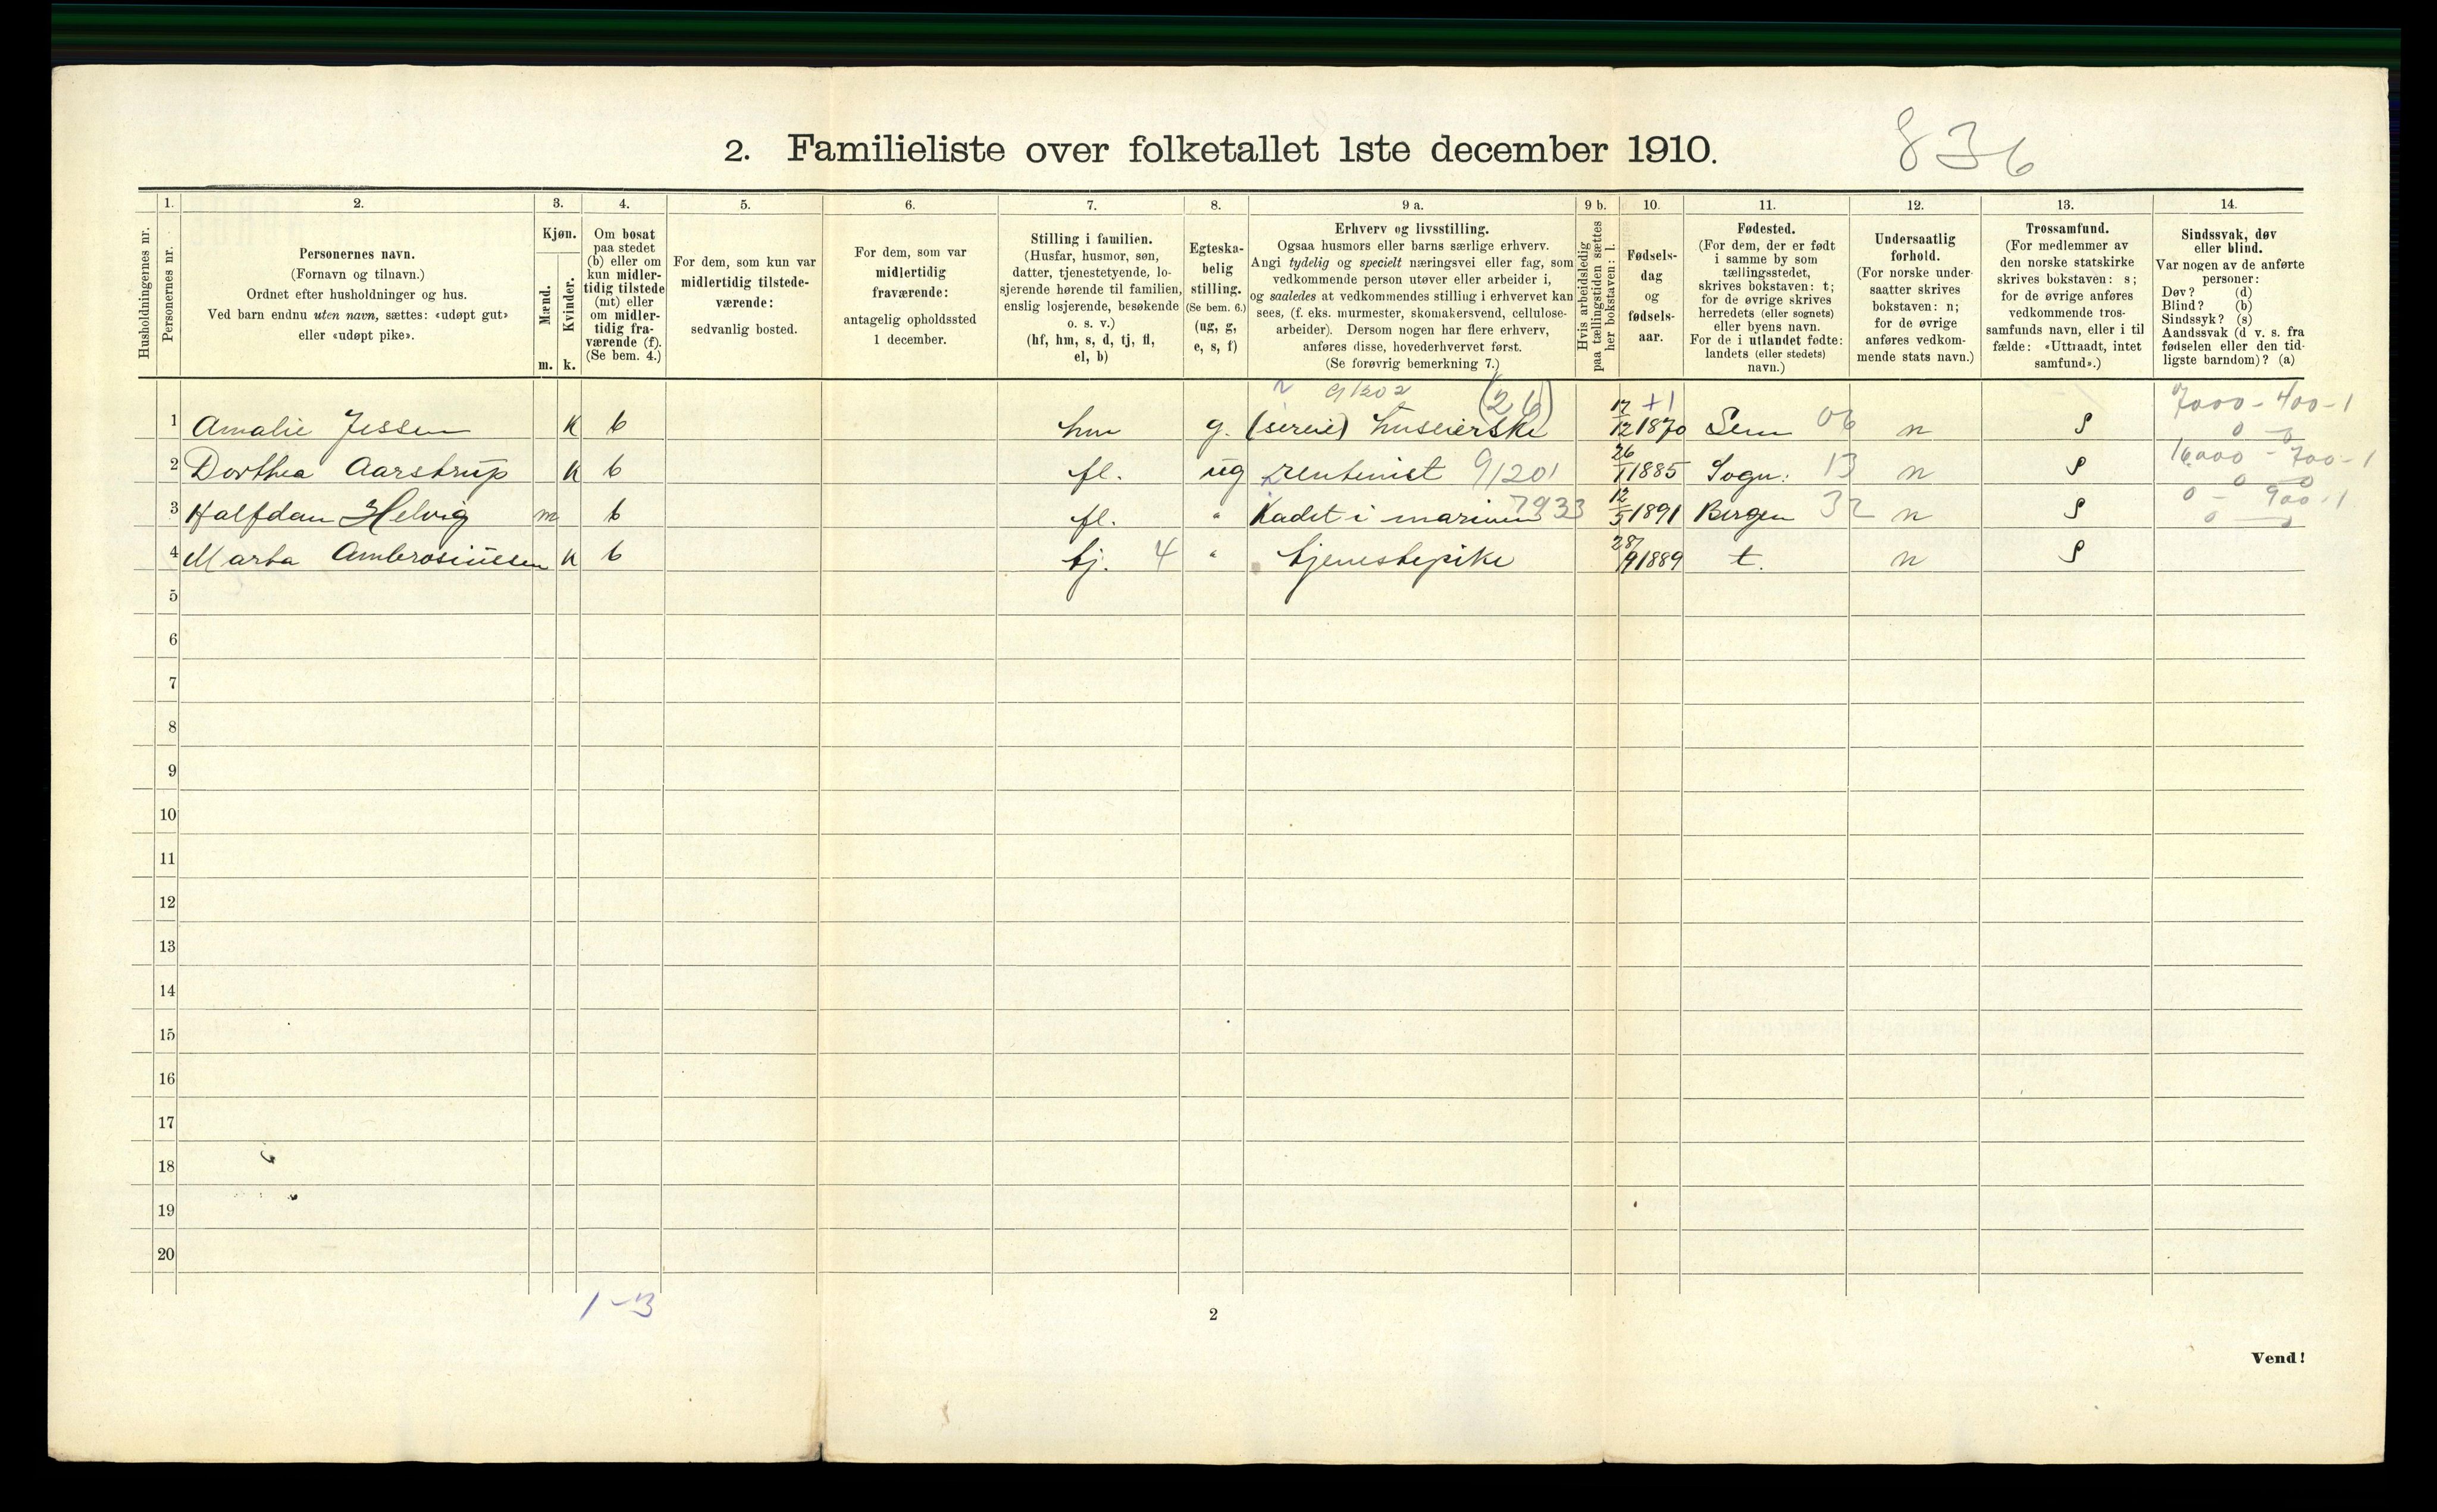 2. Familieliste over folketallet 1ste december 1910. 836
1. 2. 3. 4. 5. 6. 7. 8. 9 a. 9 b. 10. 11. 12. 13. 14.
Husholdningernes nr.
Personernes nr.
Personernes navn.
(Fornavn og tilnavn.)
Ordnet efter husholdninger og hus.
Ved barn endnu uten navn, sættes: «udøpt gut»
eller «udøpt pike».
Kjøn.
Mænd.
m.
Kvinder.
k.
Om bosat
paa stedet
(b) eller om
kun midler-
tidig tilstede
(mt) eller
om midler-
tidig fra-
værende (f).
(Se bem. 4.)
For dem, som kun var
midlertidig tilstede-
værende:
sedvanlig bosted.
For dem, som var
midlertidig
fraværende:
antagelig opholdssted
1 december.
Stilling i familien.
(Husfar, husmor, søn,
datter, tjenestetyende, lo-
sjerende hørende til familien,
enslig losjerende, besøkende
o. s. v.)
(hf, hm, s, d, tj, fl,
el, b)
Egteska-
belig
stilling.
(Se bem. 6.)
(ug, g,
e, s, f)
Erhverv og livsstilling.
Ogsaa husmors eller barns særlige erhverv.
Angi tydelig og specielt næringsvei eller fag, som
vedkommende person utøver eller arbeider i,
og saaledes at vedkommendes stilling i erhvervet kan
sees, (f. eks. murmester, skomakersvend, cellulose-
arbeider). Dersom nogen har flere erhverv,
anføres disse, hovederhvervet først.
(Se forøvrig bemerkning 7.)
Hvis arbeidsledig
paa tællingstiden sættes
her bokstaven: l.
Fødsels-
dag
og
fødsels-
aar.
Fødested.
(For dem, der er født
i samme by som
tællingsstedet,
skrives bokstaven: t;
for de øvrige skrives
herredets (eller sognets)
eller byens navn.
For de i utlandet fødte:
landets (eller stedets)
navn.)
Undersaatlig
forhold.
(For norske under-
saatter skrives
bokstaven: n;
for de øvrige
anføres vedkom-
mende stats navn.)
Trossamfund.
(For medlemmer av
den norske statskirke
skrives bokstaven: s;
for de øvrige anføres
vedkommende tros-
samfunds navn, eller i til
fælde: «Uttraadt, intet
samfund».)
Sindssvak, døv
eller blind.
Var nogen av de anførte
personer:
Døv? (d)
Blind? (b)
Sindssyk? (s)
Aandssvak (d v. s. fra
fødselen eller den tid-
ligste barndom)? (a)
91202 (26) +1 7000-400-1
1 Amalie Jessen K b hm g. huseierske 17/12 1870 Sem 06 n s 0 - 0
2 Dorthea Aarstrup K b fl. ug rentenist 91201 26/1 1885 Sogn. 13 n s 16000-700-1 0 0
3 Halfdan Helvig m b fl. " Kadet i marinen 7933 12/5 1891 Bergen 32 n s 0 - 900-1 0
4 Marta Ambrosiussen K b tj. 4 " tjenestepike 28/9 1889 t. n s
5
6
7
8
9
10
11
12
13
14
15
16
17
18
19
20
1-3
2
Vend!